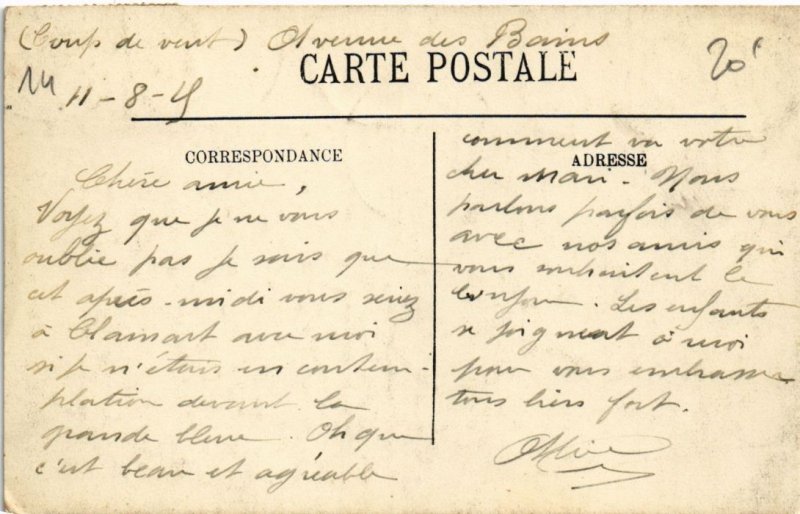 (Coup de vent) Avenue des Bains
CARTE POSTALE
20f
14
11-8-25
CORRESPONDANCE
Chère amie,
Voyez que je ne vous
oublie pas je sais que
cet après-midi vous seriez
à Clamart avec moi
si je n'étais en contem-
plation devant la
grande bleue. Oh que
c'est beau et agréable
ADRESSE
comment va votre
cher Mari. Nous
parlons parfois de vous
avec nos amis qui
vous souhaitent le
bonjour. Les enfants
se joignent à moi
pour vous embrasser
tous biens fort.